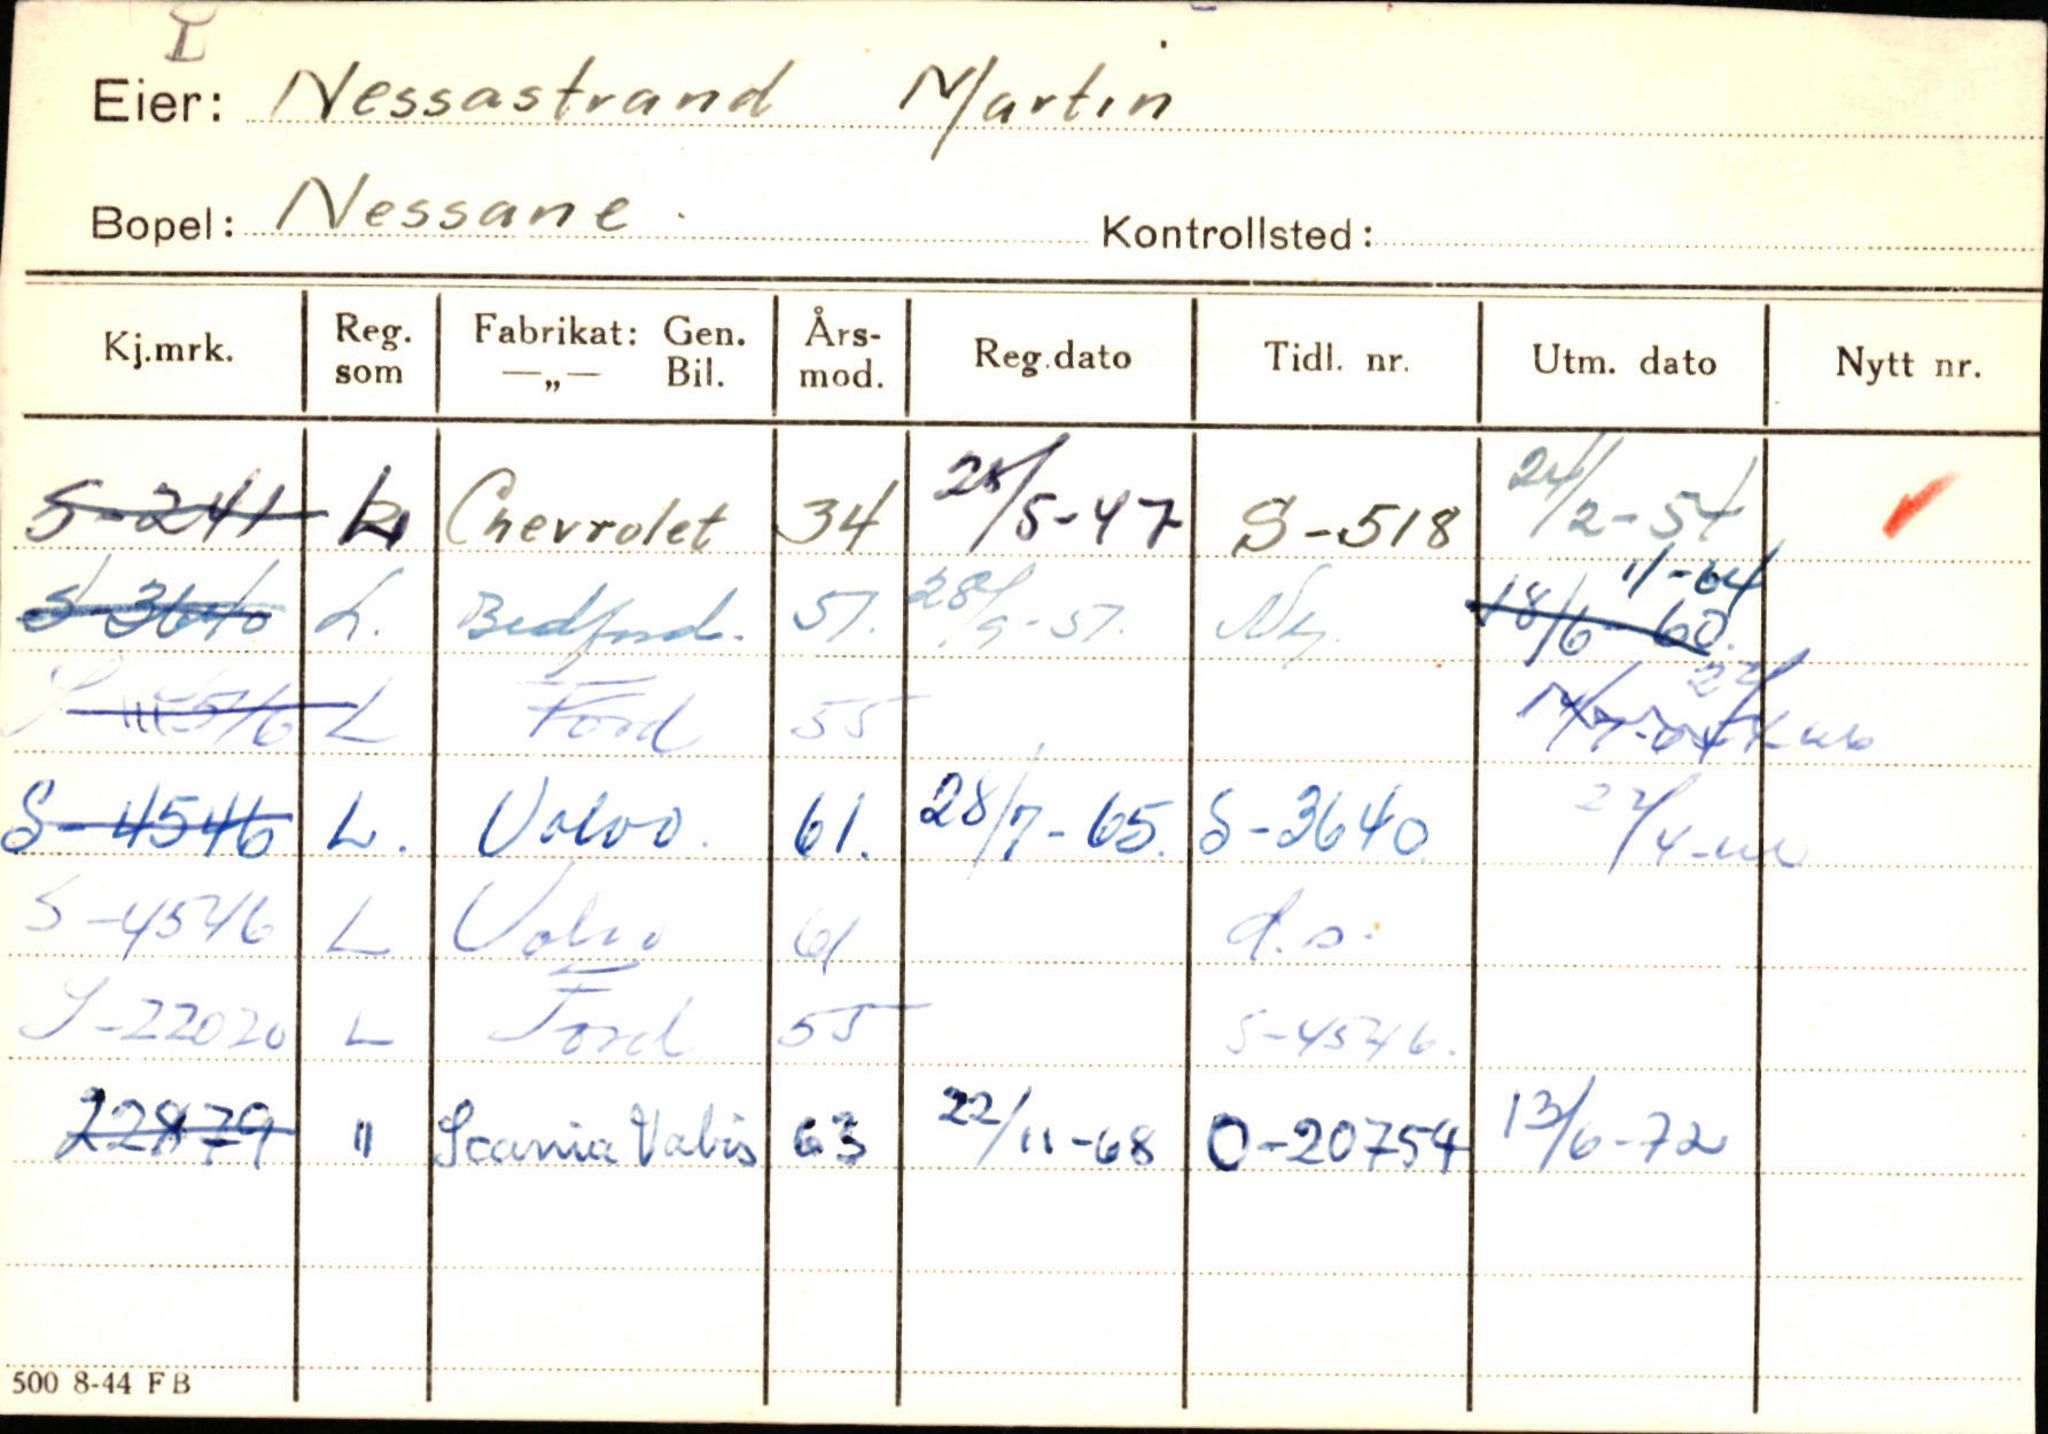 I
Eier: Nessastrand Martin
Bopel: Nessane. Kontrollsted:
Kj.mrk. Reg. som Fabrikat: Gen. —„— Bil. Års-mod. Reg.dato Tidl. nr. Utm. dato Nytt nr.
S-241 L Chevrolet 34 28/5-47 S-518 24/2-54
S-3640 L. Bedford. 57. 28/9-57. Ny. 18/6-60. 11-64
L Ford 55
S-4546 L. Volvo. 61. 28/7-65. S-3640
S-4546 L Volvo 61 d.s.
S-22020 L Ford 55 S-4546.
22879 " Scania Vabis 63 22/11-68 O-20754 13/6-72
500 8-44 FB